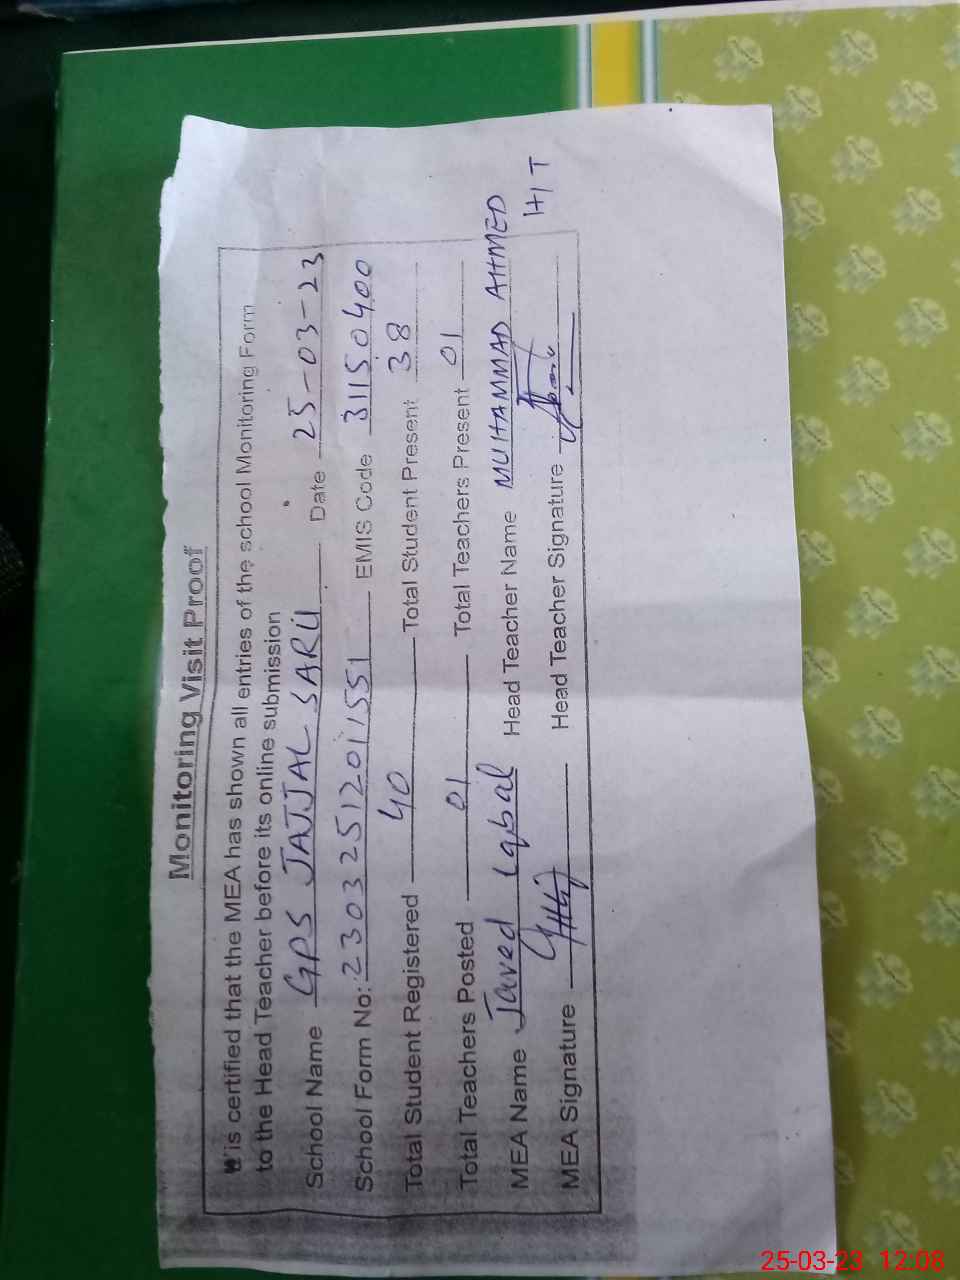 Monitoring Visit Proof
It is certified that the MEA has shown all entries of the school Monitoring Form
to the Head Teacher before its online submission
School Name GPS JAJJAL SARU Date 25-03-23
School Form No: 23032512011551 EMIS Code 31150400
Total Student Registered 40 Total Student Present 38
Total Teachers Posted 01 Total Teachers Present 01
MEA Name Javed Iqbal Head Teacher Name MUHAMMAD AHMED
H/T
MEA Signature Head Teacher Signature
25-03-23 12:08